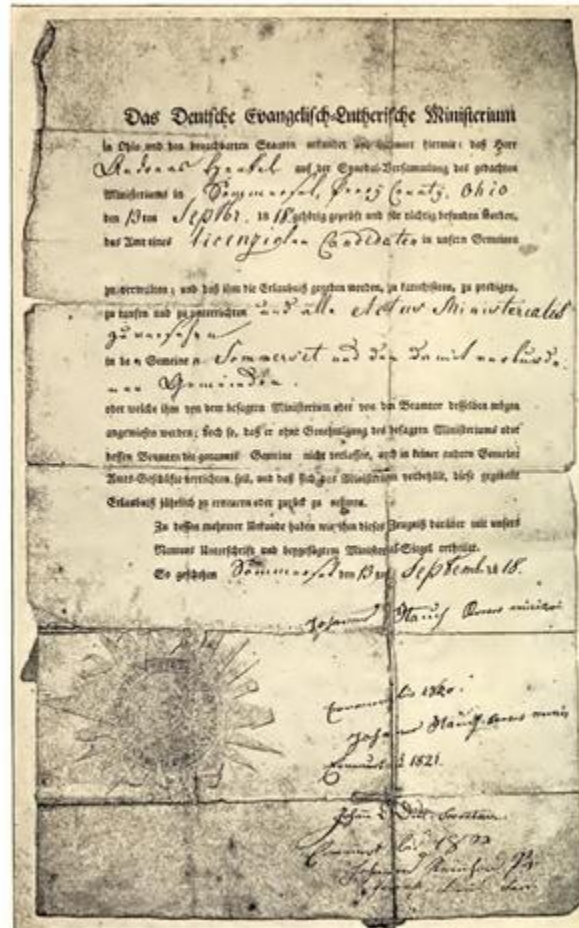 Das Deutsche Evangelisch-Lutherische Ministerium
in Ohio und den benachbarten Staaten urkundet und hiermit: daß Herr
Andreas Henkel auf der Synodal-Versammlung des gedachten
Ministeriums in Sommerset, Perry County, Ohio
den 13ten Septbr. 1818 gehörig geprüft und für tüchtig befunden worden,
das Amt eines licenzirten Candidaten in unsern Gemeinen
zu verwalten; und daß ihm die Erlaubniß gegeben worden, zu katechisiren, zu predigen,
zu taufen und zu unterrichten und alle Actus Ministeriales
zu versehen
in den Gemeinen Sommerset und den damit verbunde-
nen Gemeinden.
oder welche ihm von dem besagten Ministerium oder von den Beamten desselben mögen
angewiesen werden; doch so, daß er ohne Genehmigung des besagten Ministeriums oder
dessen Beamten die genannte Gemeine nicht verlassen, auch in keiner andern Gemeine
Amts-Geschäfte verrichten soll, und daß sich das Ministerium vorbehält, diese gegebene
Erlaubniß jährlich zu erneuern oder zurück zu nehmen.
Zu dessen mehrerer Urkunde haben wir ihm dieses Zeugniß darüber mit unsers
Namens Unterschrift und beygefügtem Ministerial-Siegel ertheilet.
So geschehen Sommerset den 13ten September 18.
Johannes Stauch
bis 1820.
Johannes Stauch
1821.
Johann
bis 18
Johannes